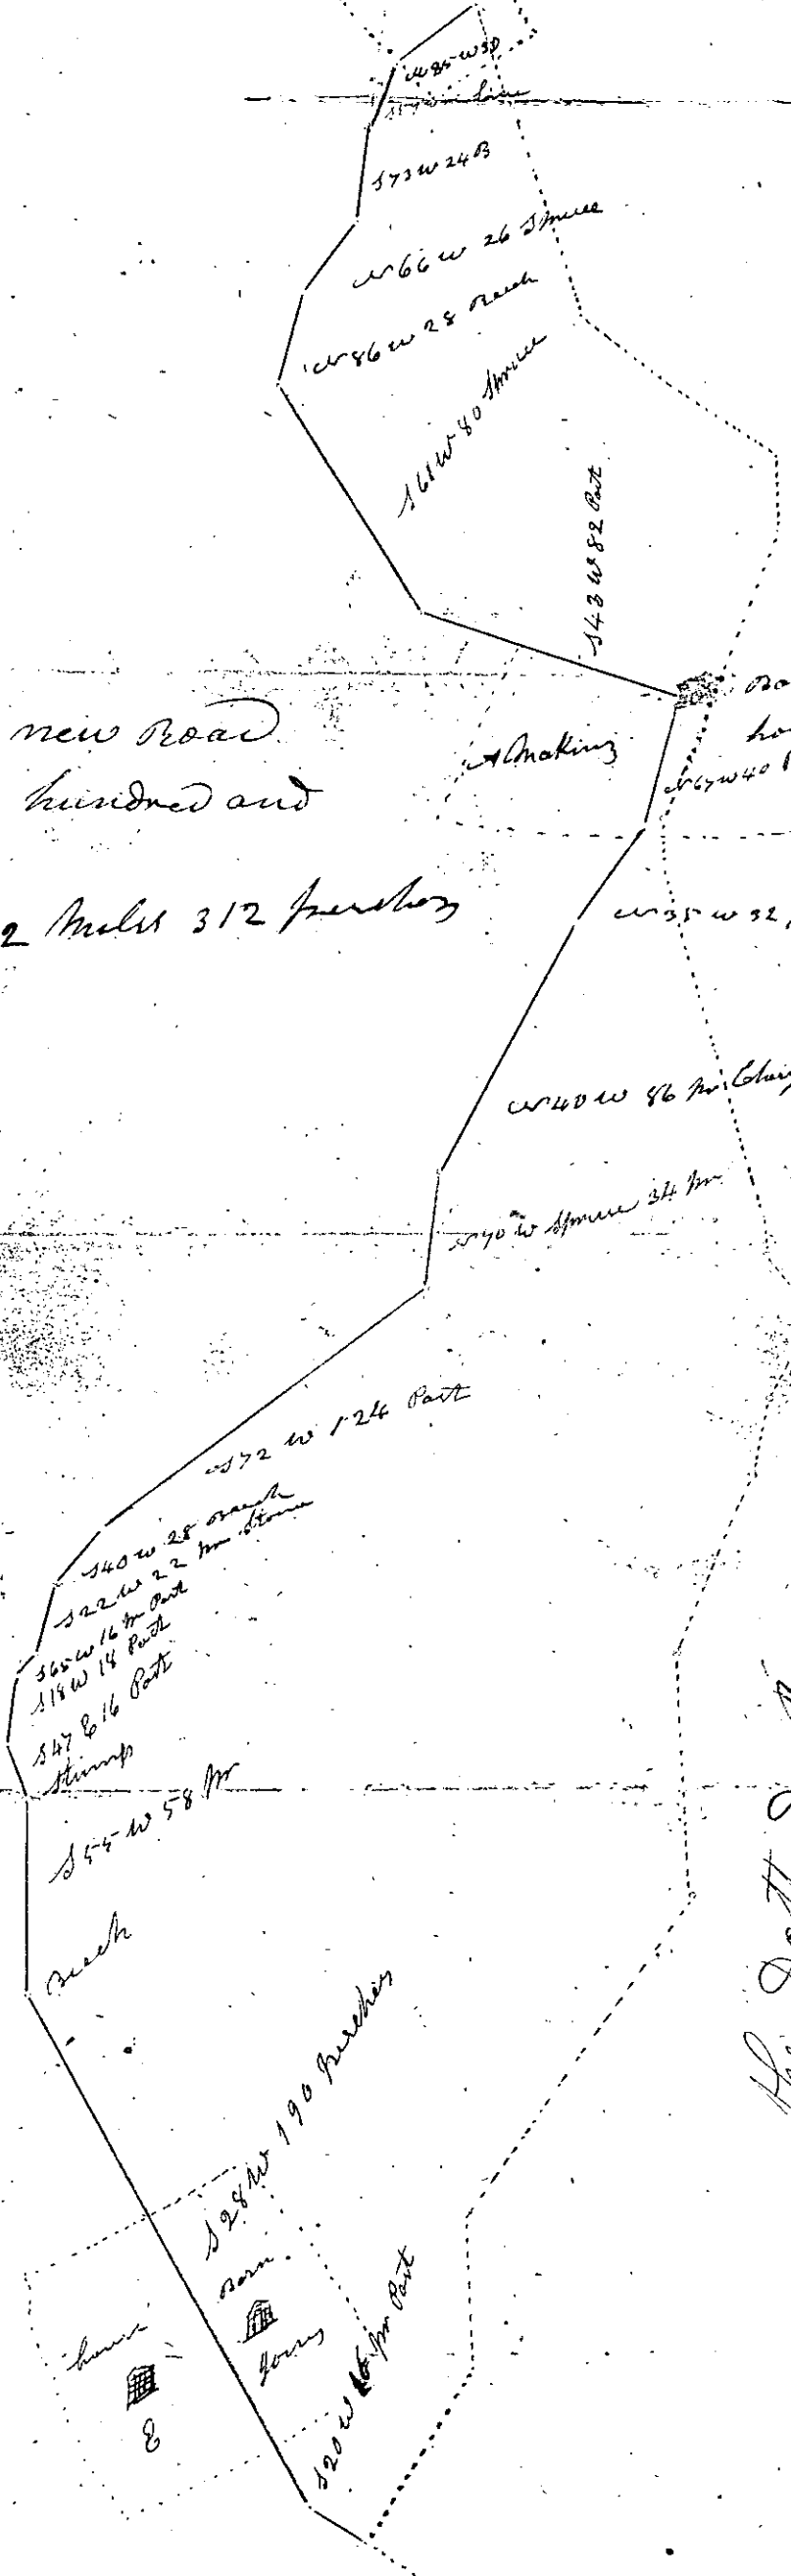 N 85 W 30
line
S 73 W 24 B
N 66 W 26 Spruce
N 86 W 28 Beech
S 61 W 80 Spruce
S 43 W 82 Post
new Road
hundred and
2 Miles 312 perches
A Making
Ba
ho
N 67 W 40 P
N 35 W 32
N 40 W 86 pr
N 70 W Spruce 34 pr
S 72 W 124 Post
S 40 W 28 Beech
S 22 W 22 pr Stone
S 65 W 16 pr Post
S 18 W 18 Post
S 47 E 16 Post
Stump
S 55 W 58 pr
Beech
S 28 W 190 perches
Barn
house
E
S 20 W pr Post